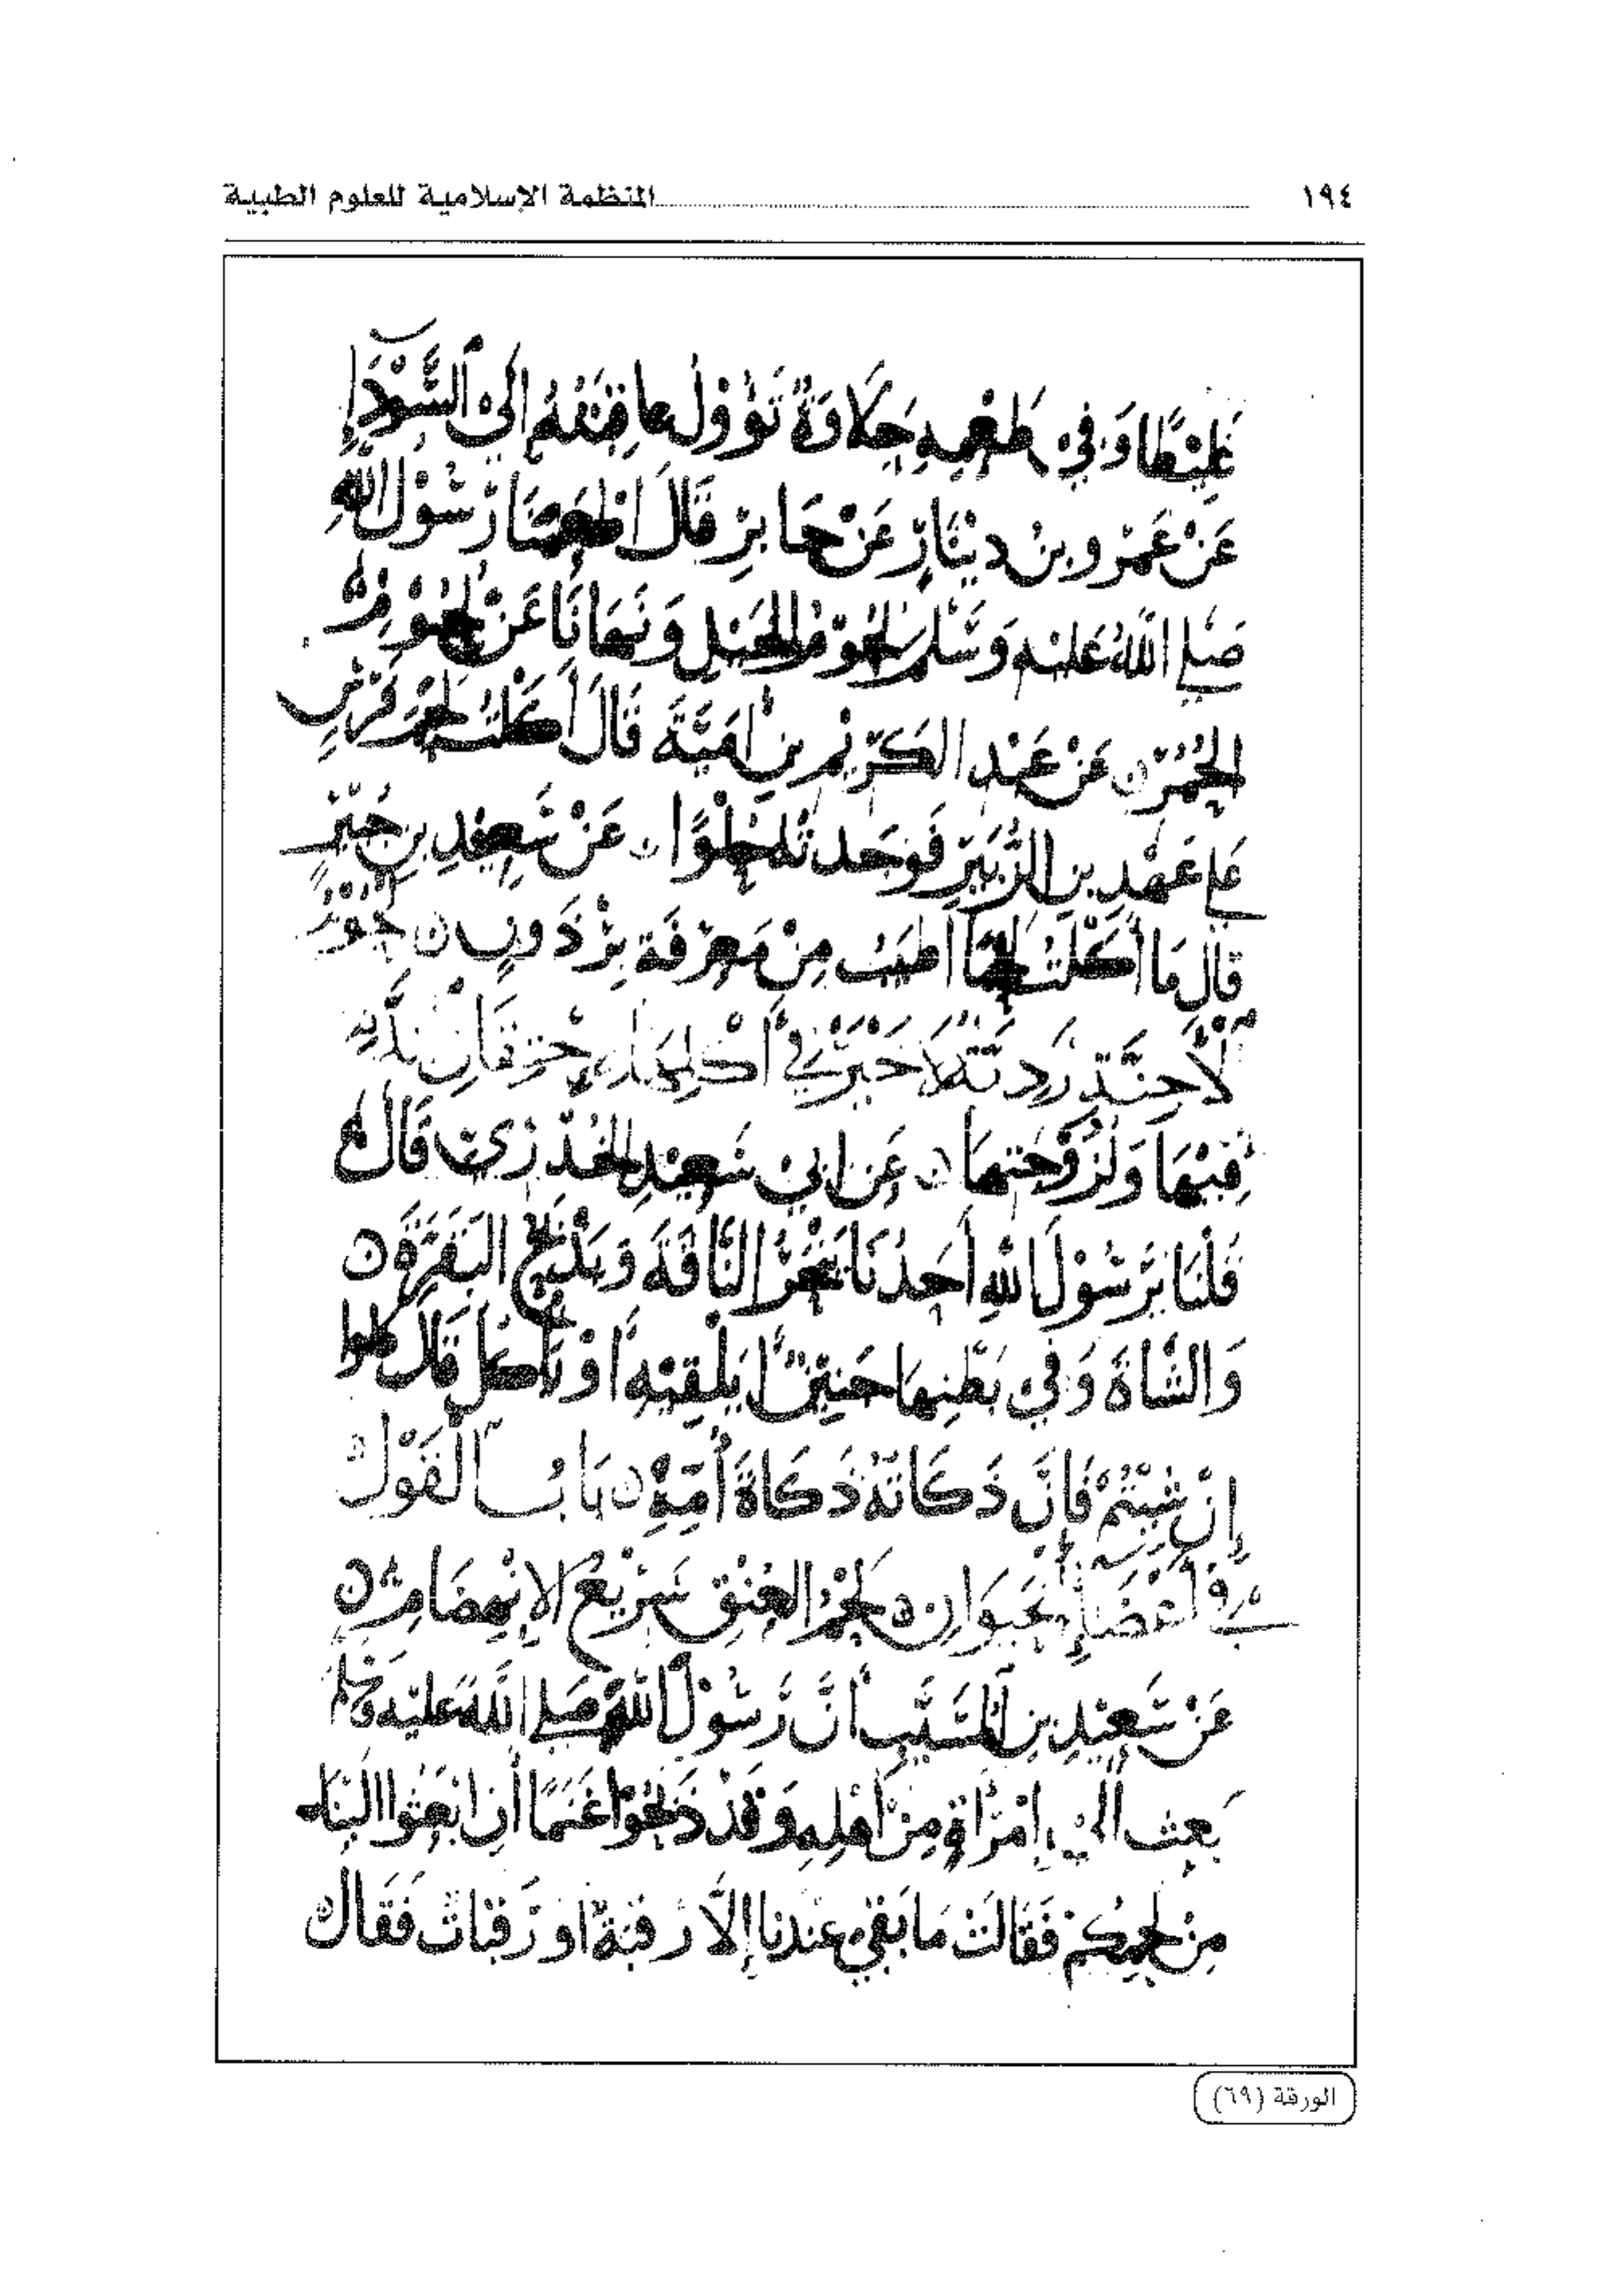 ١٩٤ المنظمة الإسلامية للعلوم الطبية
غَلِيْظًا وَفِيْ طَعْمِهِ حَلَاوَةٌ تَؤُوْلُ عاقبته إلَى السَّوْدَآءِ
عَنْ عَمْرو بنْ دِيْنَارٍ عَنْ جَابرْ قَالَ اطعمنا رَسُوْلُ اللهِ
صَلى اللهُ عَليْهِ وَسَلم لحُوْمَ الخَيْلِ وَنَهَانَا عَنْ لُحُوْمِ
الحُمُرْ عَنْ عَبْد الكَرْيم بن أمَيَّةَ قَالَ أَكَلْتُ لَحْمَ فَرَسٍ
عَلى عَهْدِ بن الزُّبَيْر فَوَجَدتهُ حُلْوًا عَنْ سَعِيْدِ بن جُبَيْرٍ
قال مَا أَكَلْتُ لحْمًا أطيَبُ مِنْ مَعْرَفَة برْذَونٍ
لَا خَيْرَ فِي أكل
فِيْهَا عَن ابيْ سَعِيْد الخُدْرِيّ قَالَ
قُلْنَا يَرَسُوْلَ اللهِ أحَدُنَا يَنْحَرُ النَّاقَةَ وَيَذْبَحُ البَقَرَةَ
وَالشَّاةَ وَفيْ بَطْنِهَا جَنيْنٌ أيُلْقِيْهِ أوْ يَأكُلُ قَالَ كلوا
إنْ شِيْتُمْ فَانَّ ذَكَاتَهُ ذَكَاةَ أُمِّهِ بَابُ القَوْلِ
فِي أعْضَاءِ الحَيَوَانِ لَحْمُ العُنْقِ سَرِيْعُ الإنْهِضَامِ
عَنْ سَعِيْدِ بنِ المُسَيَّبِ أنَّ رَسُوْلَ اللهِ صَلى اللهُ عَليْه وَسَلم
بَعَثَ إلَىْ إمْرَأةٍ مِنْ أهْلِهِ وَقَدْ ذَبَحُوْا غَنَمًا أنِ ابْعَثُوْا الَيْنَا
مِنْ لحْمِكُمْ فَقَالَتْ مَا بَقِيْ عِنْدَنَا إلَّا رَقبَةٌ او رَقَبَاتٌ فَقَال
الورقة (٦٩)